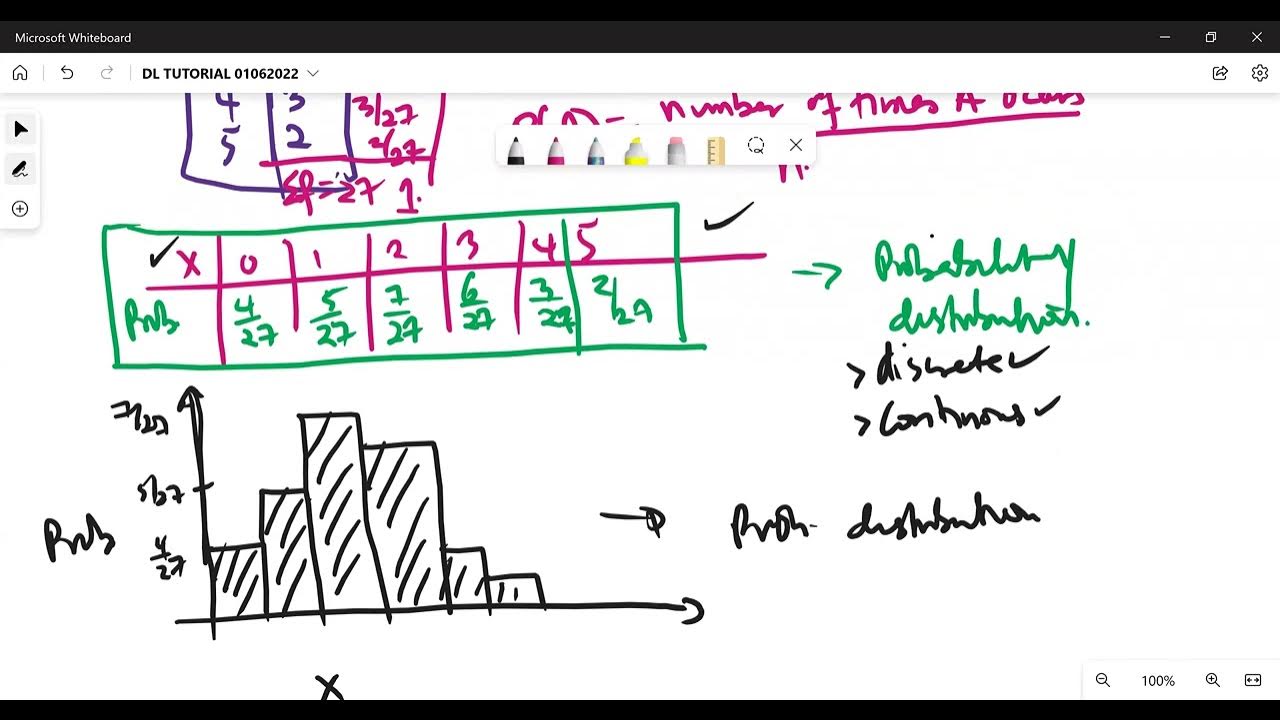 Microsoft Whiteboard
DL TUTORIAL 01062022
4 3 3/27
5 2 2/27
Σf = 27 1.
number of times A occurs
n.
X 0 1 2 3 4 5
Prob 4/27 5/27 7/27 6/27 3/27 2/27
→ Probability
distribution.
> discrete ✓
> continuous ✓
7/27
5/27
Prob 4/27
→ Prob. distribution
X
100%